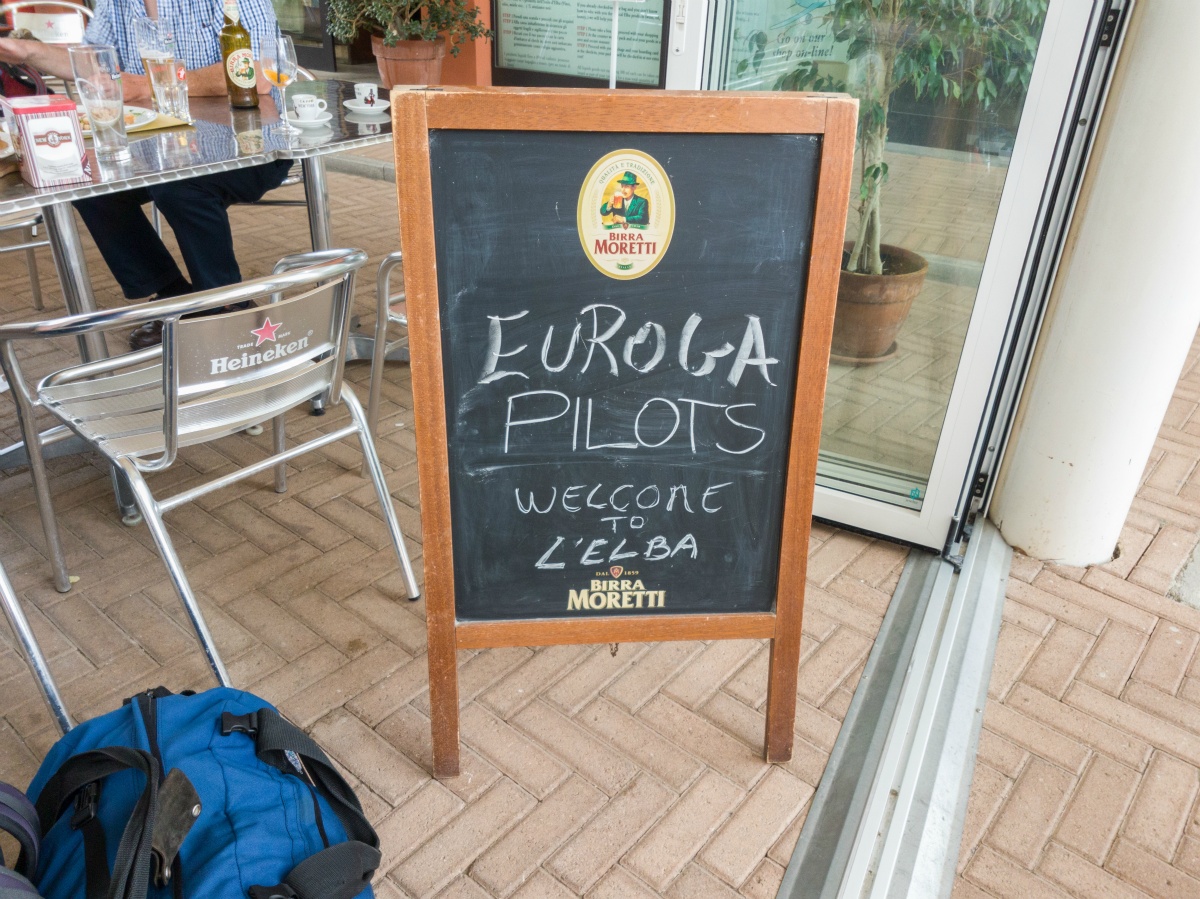 Go on our
shop on-line!
QUALITÀ E TRADIZIONE
BIRRA
MORETTI
EUROGA
PILOTS
WELCOME
TO
L'ELBA
DAL 1859
BIRRA
MORETTI
TRADE MARK
Heineken®